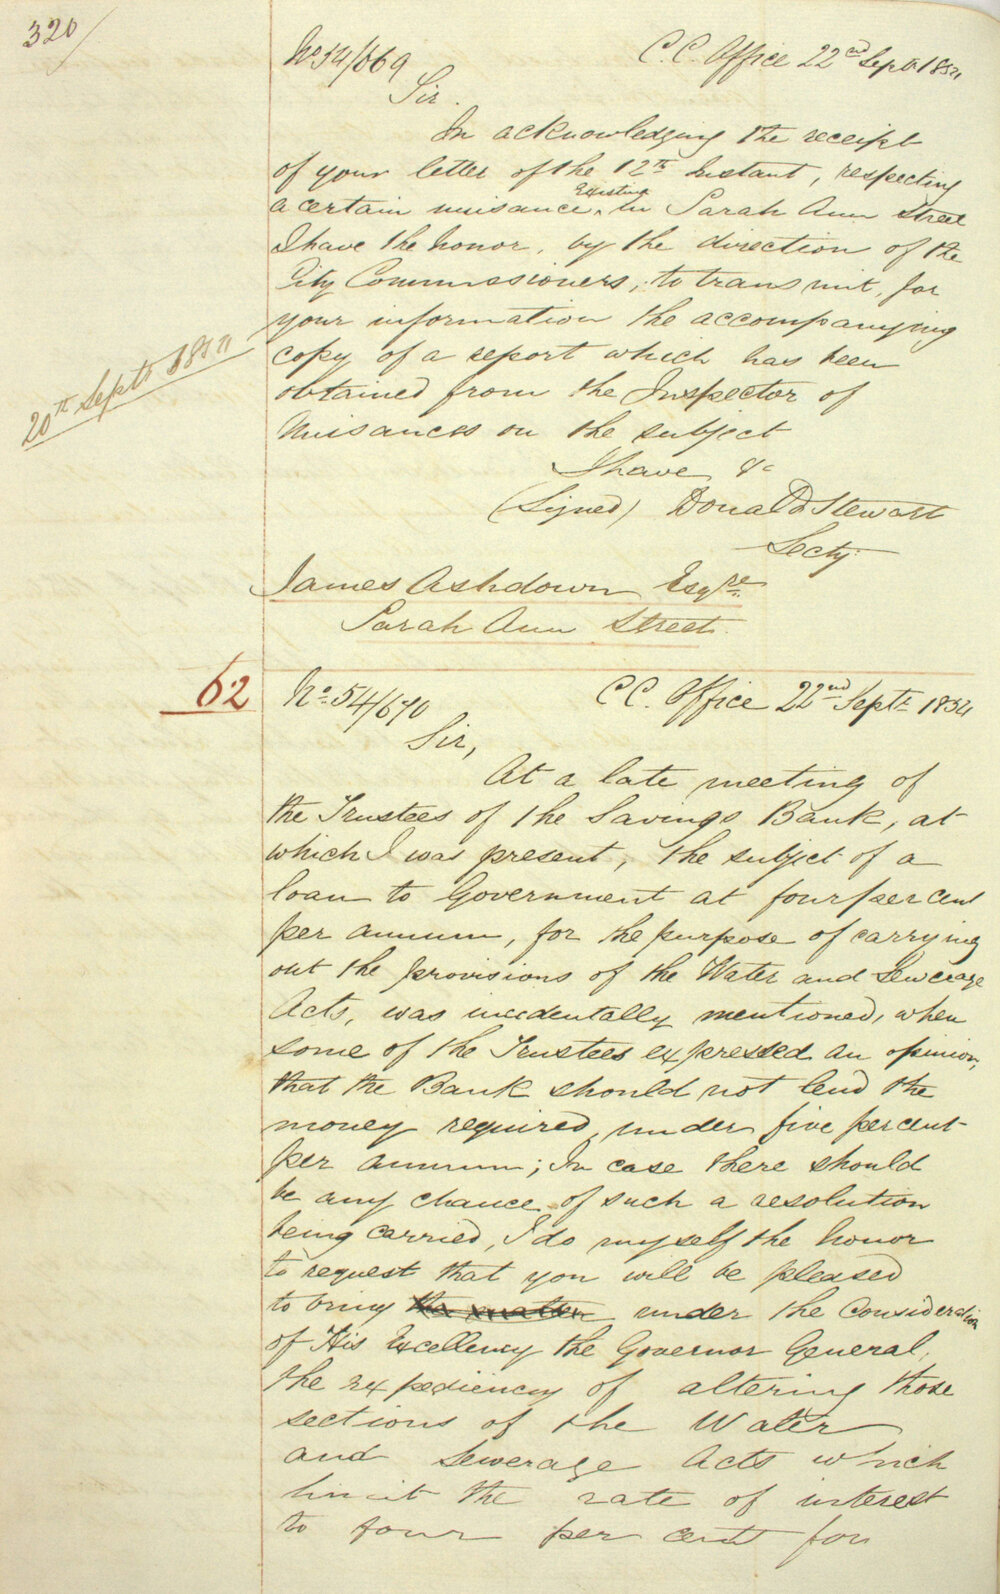 320
No 54/669 C.C. Office 22nd Sept 1854
Sir.
In acknowledging the receipt
of your letter of the 12th Instant, respecting
a certain nuisance existing in Sarah Ann Street
I have the honor, by the direction of the
City Commissioners, to transmit, for
your information the accompanying
copy of a report which has been
20th Septr 1854
obtained from the Inspector of
Nuisances on the subject
I have &c
(Signed) Donald Stewart
Secty
James Ashdown Esqre
Sarah Ann Street.
62 No. 54/670 C.C. Office 22nd Sept. 1854
Sir,
At a late meeting of
the Trustees of the Savings Bank, at
which I was present, the subject of a
loan to Government at four per cent
per annum, for the purpose of carrying
out the provisions of the Water and Sewerage
Acts, was incidentally mentioned, when
some of the Trustees expressed an opinion,
that the Bank should not lend the
money required, under five per cent
per annum; In case there should
be any chance of such a resolution
being carried, I do myself the honor
to request that you will be pleased
to bring the matter under the Consideration
of His Excellency the Governor General,
the expediency of altering those
sections of the Water
and Sewerage Acts which
limit the rate of interest
to four per cent for